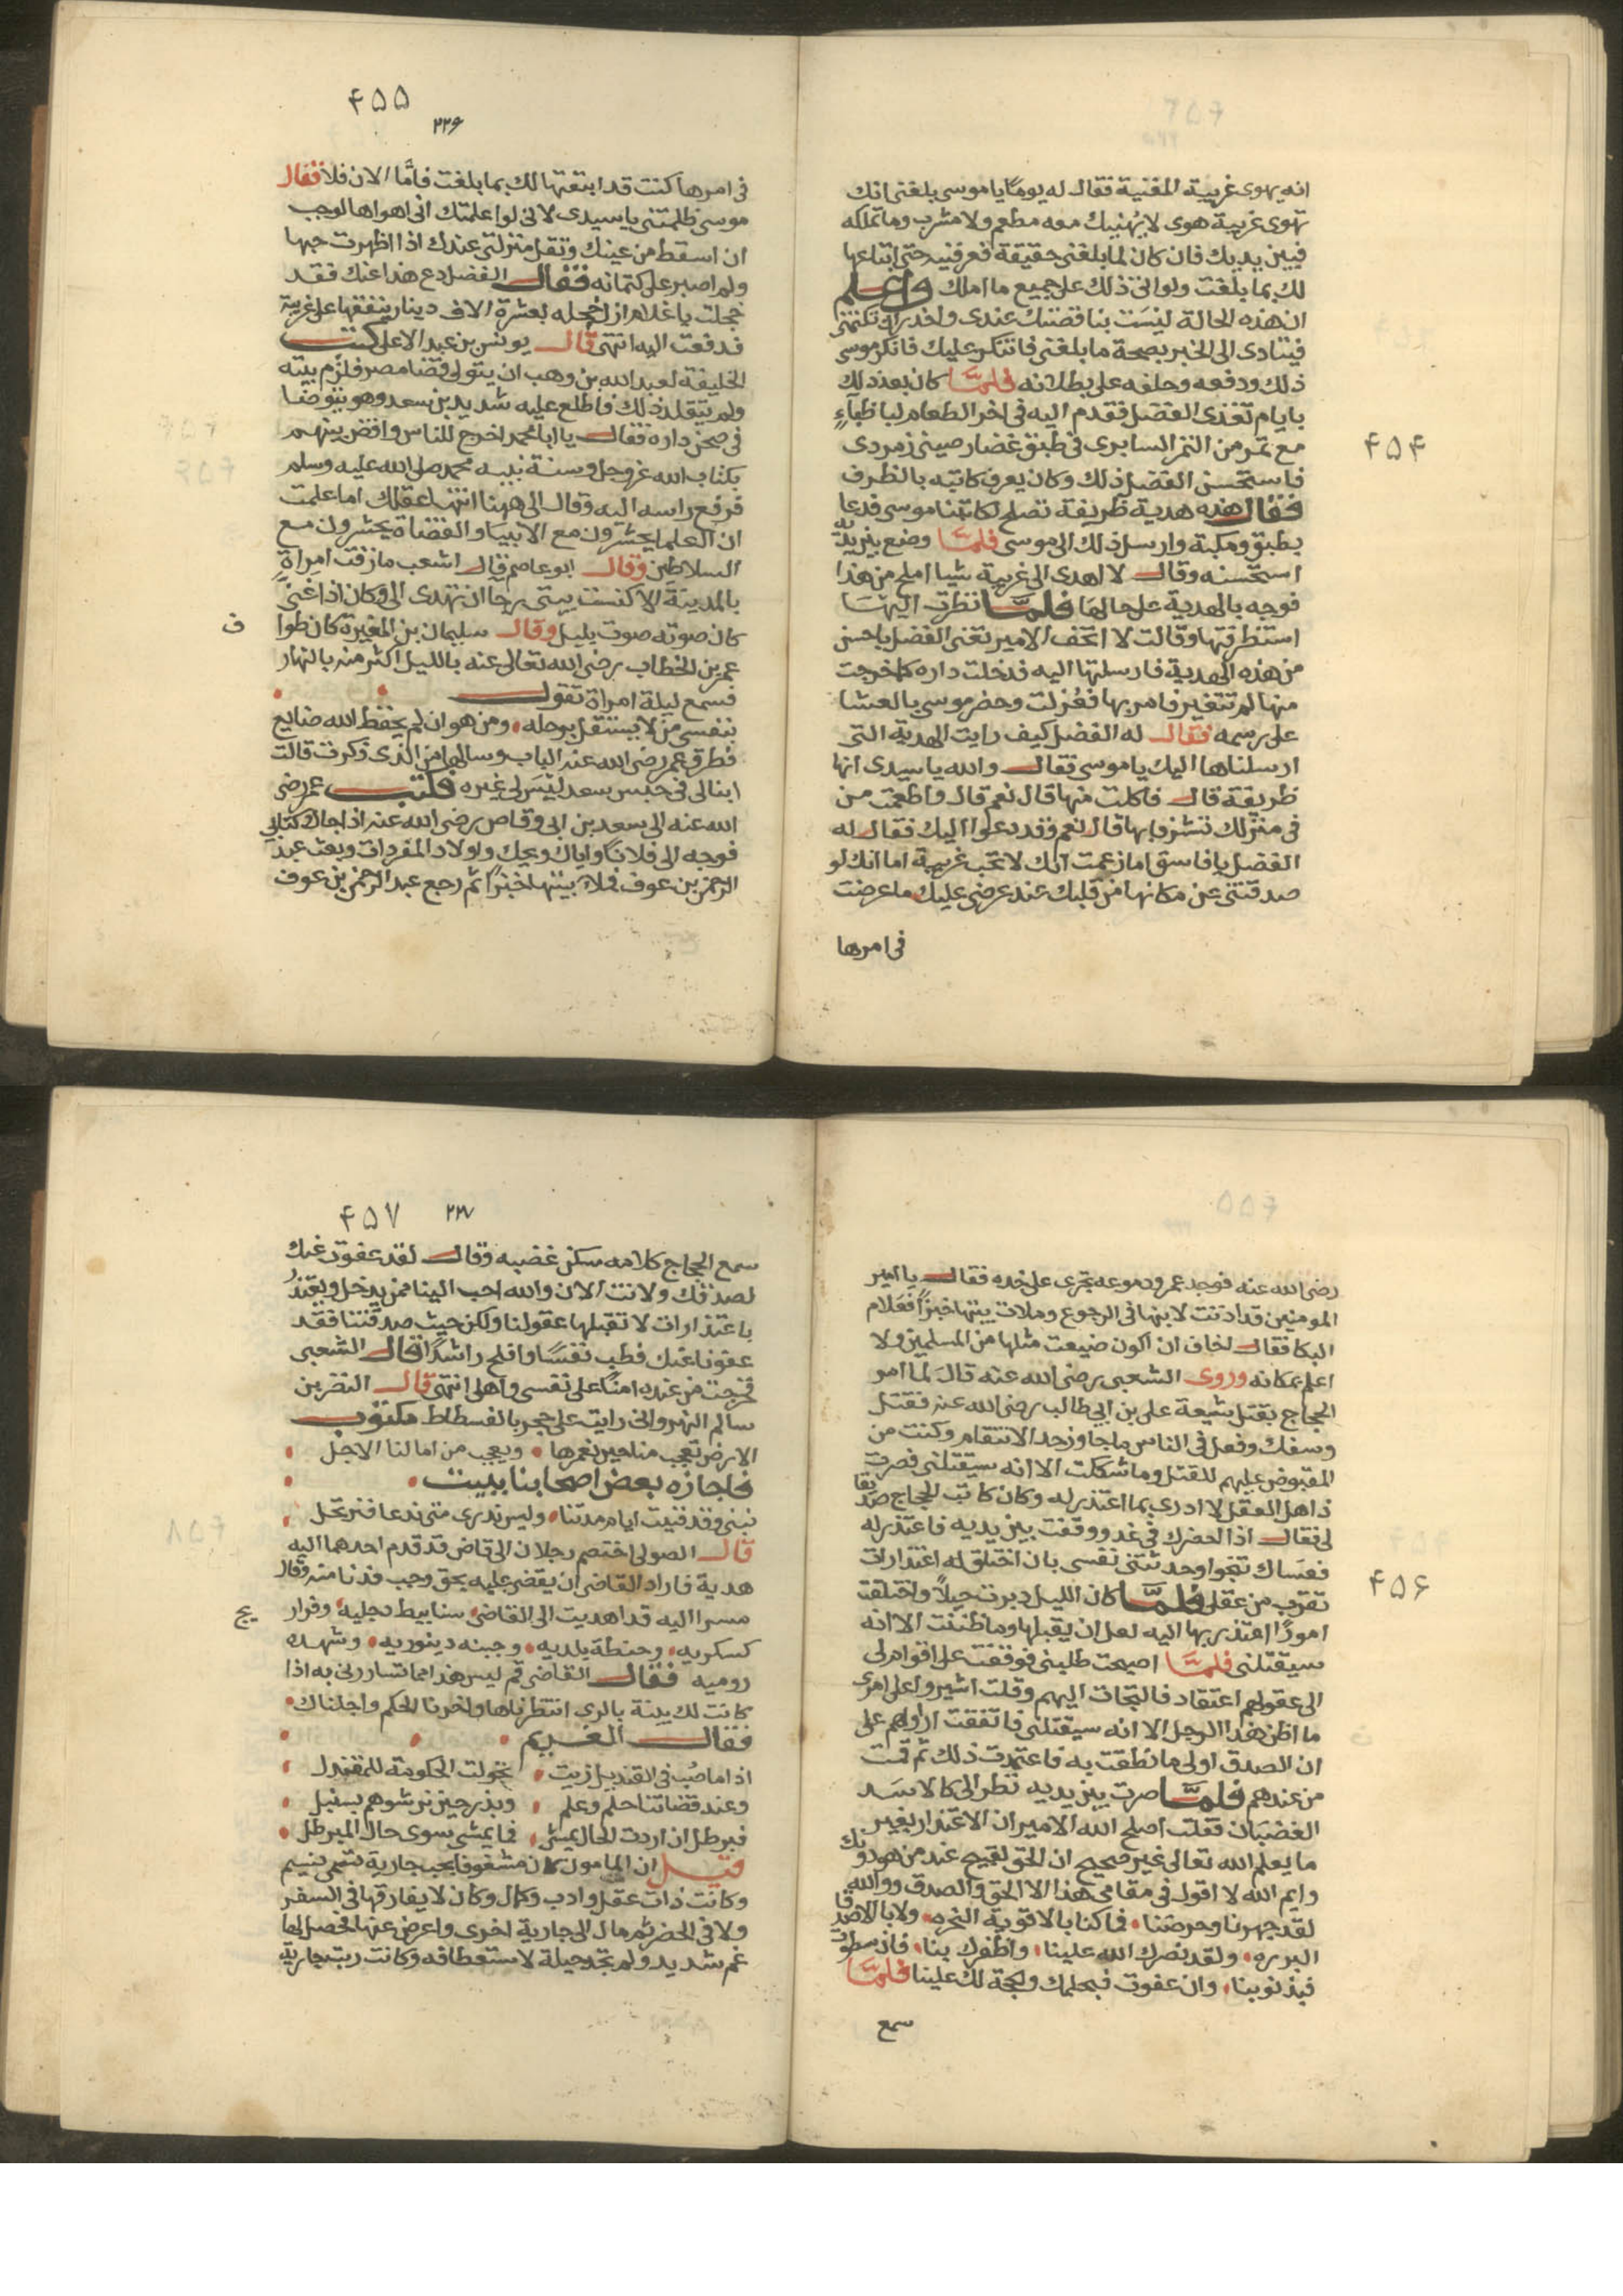 انه يهوى غريبة المغنية فقال له يوما يا موسى بلغنى انك
تهوى غريبة هوى لا يهنيك معه مطعم ولا مشرب وما تملكه
فبين يديك فان كان لما بلغنى حقيقة فعرفنيه حتى ابتاعها
لك بما بلغت ولو اتى ذلك على جميع ما املك واعلم
ان هذه الحالة ليست بناقصتك عندى واحذر ان تكتمنى
فيتنادى الى الخبر بصحة ما بلغنى فاتنكر عليك فانكر موسى
ذلك ودفعه وحلف على بطلانه فلما كان بعد ذلك
بايام تغذى الفضل فقدم اليه فى اخر الطعام لبا ظباء
مع تمر من التمر السابرى فى طبق غضار صينى زمردى
فاستحسن الفضل ذلك وكان يعرف كاتبه بالظرف
فقال هذه هدية ظريفة تصلح لكاتبنا موسى فدعا
بطبق ومكبة وارسل ذلك الى موسى فلما وضع بين يديه
استحسنه وقال لا اهدى الى غريبة شيا املح من هذا
فوجه بالهدية على حالها فلما نظرت اليها
استظرفتها وقالت لا اتحف الامير تعنى الفضل باحسن
من هذه الهدية فارسلتها اليه فدخلت داره كما خرجت
منها لم تتغير فامر بها فعزلت وحضر موسى بالعشا
على رسمه فقال له الفضل كيف رايت الهدية التى
ارسلناها اليك يا موسى فقال والله يا سيدى انها
ظريفة قال فاكلت منها قال نعم قال واطعمت من
فى منزلك قال نعم وقد دعوا اليك فقال له
الفضل يا فاسق اما زعمت انك لا تحب غريبة اما انك لو
صدقتنى عن مكانها من قلبك عند عرضى عليك ما عرضت
فى امرها
۴۵۴
۴۵۵
۲۲۶
فى امرها كنت قد ابتعتها لك بما بلغت فاما الان فلا فقال
موسى ظلمتنى يا سيدى لانى لو اعلمتك انى اهواها لوجب
ان اسقط من عينك وتقل منزلتى عندك اذا اظهرت حبها
ولم اصبر على كتمانه فقال الفضل دع هذا عنك فقد
خجلت يا غلام ازل خجله بعشرة الاف دينار ينفقها على غريبة
فدفعت اليه انتهى قال يونس بن عبد الاعلى كتب
الخليفة لعبد الله بن وهب ان يتولى قضا مصر فلزم بيته
ولم يتقلد ذلك فاطلع عليه شديد بن سعد وهو يتوضا
فى صحن داره فقال يا ابا محمد اخرج للناس واقض بينهم
بكتاب الله عز وجل وسنة نبيه محمد صلى الله عليه وسلم
فرفع راسه اليه وقال الى ههنا انتها عقلك اما علمت
ان العلما يحشرون مع الانبيا والقضاة يحشرون مع
السلاطين وقال ابو عاصم قال اشعب ما زفت امراة
بالمدينة الا كنست بيتى رجا ان تهدى الى وكان اذا غنى
كان صوته صوت بليل وقال سليمان بن المغيرة كان طوا
ف
عمر بن الخطاب رضى الله تعالى عنه بالليل اكثر منه بالنهار
فسمع ليلة امراة تقول
بنفسى من لا يستقل برحله ومن هو ان لم يحفظ الله ضايع
فطرق عمر رضى الله عنه الباب وسالها من الذى ذكرت قالت
ابنا لى فى حبس سعد ليس لى غيره فكتب عمر رضى
الله عنه الى سعد بن ابى وقاص رضى الله عنه اذا جاك كتابى
فوجه الى فلانا واياك ويحك واولاد المفردات وبعث عبد
الرحمن بن عوف فملا بيتها خبزا ثم رجع عبد الرحمن بن عوف
رضى الله عنه فوجد عمر ودموعه تجرى على خده فقال يا امير
المومنين قد اذنت لابنها فى الرجوع وملات بيتها خبزا فعلام
البكا فقال اخاف ان اكون ضيعت مثلها من المسلمين ولا
اعلم بمكانه وروى الشعبى رضى الله عنه قال لما امر
الحجاج بقتل شيعة على بن ابى طالب رضى الله عنه فقتل
وسفك وفعل فى الناس ما جاوز حد الانتقام وكنت من
المقبوض عليهم للقتل وما شككت الا انه سيقتلنى فصرت
ذاهل العقل لا ادرى بما اعتذر له وكان كاتب الحجاج صديقا
لى فقال اذا احضرك فى غد ووقفت بين يديه فاعتذر له
فعساك تنجو وحدثتنى نفسى بان اختلق له اعتذارات
تقرب من عقلى فلما كان الليل دبرت حيلا واختلقت
امورا اعتذر بها اليه لعل ان يقبلها وما ظننت الا انه
سيقتلنى فلما اصبحت طلبنى فوقفت على اقوام لى
الى عقولهم اعتقاد فالتجات اليهم وقلت اشيروا على امرى
ما اظن هذا الرجل الا انه سيقتلنى فاتفقت اراوهم على
ان الصدق اولى ما نطقت به فاعتمدت ذلك ثم قمت
من عندهم فلما صرت بين يديه نظر الى كالاسد
الغضبان فقلت اصلح الله الامير ان الاعتذار بغير
ما يعلم الله تعالى غير صحيح ان الحق لقبيح عند من هو دونك
وايم الله لا اقول فى مقامى هذا الا الحق والصدق ووالله
لقد جهرنا وحرضنا فما كنا بالاقوية الفجره ولا بالاصدقا
البرره ولقد نصرك الله علينا واظفرك بنا فان سطوت
فبذنوبنا وان عفوت فبحلمك والحجة لك علينا فلما
سمع
۴۵۶
۴۵۷
۲۲۷
سمع الحجاج كلامه سكن غضبه وقال لقد عفوت عنك
لصدقك ولانت الان والله احب الينا ممن يدخل ويعتذر
باعتذارات لا تقبلها عقولنا ولكن حيث صدقتنا فقد
عفونا عنك فطب نفسا وافلح راشدا قال الشعبى
فخرجت من عنده امنا على نفسى واهلى انتهى قال النضر بن
سالم النهروانى رايت على حجر بالفسطاط مكتوب
الارض تعجب منا حين نعمرها ويعجب من امالنا الاجل
فاجازه بعض اصحابنا ببيت
نبنى وقد فنيت ايام مدتنا وليس ندرى متى ندعا فنرتحل
قال الصولى اختصم رجلان الى قاض قد قدم احدهما اليه
هدية فاراد القاضى ان يقضى عليه بحق وجب فدنا منه وقال
مسرا اليه قد اهديت الى القاضى سنابيط دجليه وفرار
يج
كسكريه وحنطة بلديه وجبنه دينوريه وشهده
روميه فقال القاضى قم ليس هذا مما تساررنى به اذا
كانت لك بينة بالرى انتظرناها واخرنا الحكم واجلناك
فقال الغريم
اذا ما صب فى القنديل زيت تحولت الحكومة للمقندل
وعند قضاتنا حلم وعلم وبذر حين نرشوهم بسنبل
فبرطل ان اردت الحال يمشى فما يمشى سوى حال المبرطل
قيل ان المامون كان مشغوفا بحب جارية تسمى نسيم
وكانت ذات عقل وادب وكمال وكان لا يفارقها فى السفر
ولا فى الحضر ثم مال الى جارية اخرى واعرض عنها فحصل لها
غم شديد ولم تجد حيلة لاستعطافه وكانت ربت جارية